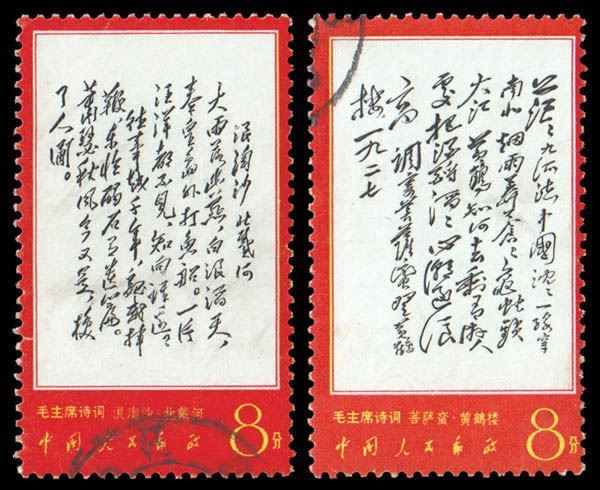 浪淘沙 北戴河
大雨落幽燕，白浪滔天，
秦皇島外打魚船。一片
汪洋都不見，知向誰邊
往事越千年，魏武揮
鞭，东临碣石有遗篇。
萧瑟秋风今又是，换
了人间。
毛主席诗词 浪淘沙·北戴河
中国人民邮政
8分
茫茫九派流中國 沉沉一線穿
南北 烟雨莽苍苍 龟蛇锁
大江 黄鹤知何去 剩有游人
处 把酒酹滔滔 心潮逐浪
高 调寄菩萨蛮 登黄鹤
楼 一九二七
毛主席诗词 菩萨蛮·黄鹤楼
中国人民邮政
8分